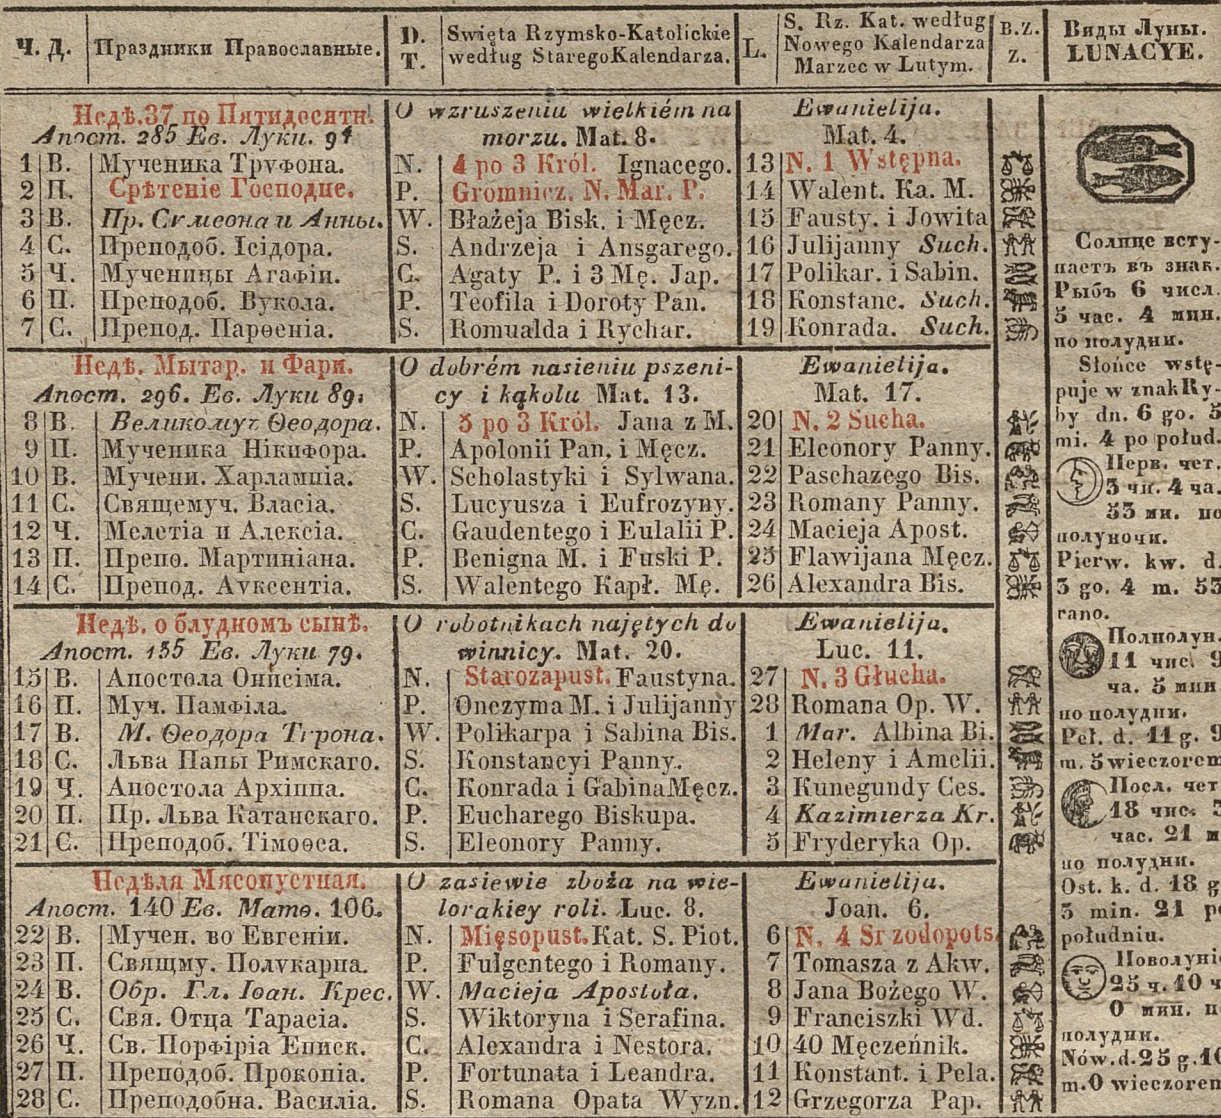 Ч. Д. Праздники Православные. D. T. Święta Rzymsko-Katolickie według StaregoKalendarza. L. S. Rz. Kat. według Nowego Kalendarza Marzec w Lutym. B.Z. Z. Виды Луны. LUNACYE.
Недѣ.37 по Пятидесятн. O wzruszeniu wielkiém na Ewanielija.
Апост. 285 Ев. Луки. 94 morzu. Mat. 8. Mat. 4.
1 В. Мученика Труфона. N. 4 po 3 Król. Ignacego. 13 N. 1 Wstępna.
2 П. Срѣтеніе Господне. P. Gromnicz. N. Mar. P. 14 Walent. Ka. M.
3 В. Пр. Сѵмеона и Анны. W. Błażeja Bisk. i Męcz. 15 Fausty. i Jowita
4 С. Преподоб. Ісідора. S. Andrzeja i Ansgarego. 16 Julijanny Such.
5 Ч. Мученицы Агафіи. C. Agaty P. i 3 Mę. Jap. 17 Polikar. i Sabin.
6 П. Преподоб. Вукола. P. Teofila i Doroty Pan. 18 Konstanc. Such.
7 С. Препод. Парѳенія. S. Romualda i Rychar. 19 Konrada. Such.
Недѣ. Мытар. и Фари. O dobrém nasieniu pszeni- Ewanielija.
Апост. 296. Ев. Луки 89. cy i kąkolu Mat. 13. Mat. 17.
8 В. Великомуч Ѳеодора. N. 5 po 3 Król. Jana z M. 20 N. 2 Sucha.
9 П. Мученика Нікифора. P. Apolonii Pan. i Męcz. 21 Eleonory Panny.
10 В. Мучени. Харлампіа. W. Scholastyki i Sylwana. 22 Paschazego Bis.
11 С. Священмуч. Власіа. S. Lucyusza i Eufrozyny. 23 Romany Panny.
12 Ч. Мелетіа и Алексіа. C. Gaudentego i Eulalii P. 24 Macieja Apost.
13 П. Препо. Мартиніана. P. Benigna M. i Fuski P. 25 Flawijana Męcz.
14 С. Препод. Ауксентіа. S. Walentego Kapł. Mę. 26 Alexandra Bis.
Недѣ. о блудномъ сынѣ. O robotnikach najętych do Ewanielija.
Апост. 135 Ев. Луки 79. winnicy. Mat. 20. Luc. 11.
15 В. Апостола Онисіма. N. Starozapust. Faustyna. 27 N. 3 Głucha.
16 П. Муч. Памфіла. P. Onezyma M. i Julijanny 28 Romana Op. W.
17 В. М. Ѳеодора Тѵрона. W. Polikarpa i Sabina Bis. 1 Mar. Albina Bi.
18 С. Льва Папы Римскаго. S. Konstancyi Panny. 2 Heleny i Amelii.
19 Ч. Апостола Архіппа. C. Konrada i GabinaMęcz. 3 Kunegundy Ces.
20 П. Пр. Льва Катанскаго. P. Eucharego Biskupa. 4 Kazimierza Kr.
21 С. Преподоб. Тімоѳеа. S. Eleonory Panny. 5 Fryderyka Op.
Недѣля Мясопустная. O zasiewie zboża na wie- Ewanielija.
Апост. 140 Ев. Матѳ. 106. lorakiey roli. Luc. 8. Joan. 6.
22 В. Мучен. во Евгеніи. N. Mięsopust. Kat. S. Piot. 6 N. 4 Srzodopots.
23 П. Свящму. Полукарпа. P. Fulgentego i Romany. 7 Tomasza z Akw.
24 В. Обр. Гл. Іоан. Крес. W. Macieja Apostoła. 8 Jana Bożego W.
25 С. Свя. Отца Тарасіа. S. Wiktoryna i Serafina. 9 Franciszki Wd.
26 Ч. Св. Порфіріа Еписк. C. Alexandra i Nestora. 10 40 Męczeńnik.
27 П. Преподоб. Прокопіа. P. Fortunata i Leandra. 11 Konstant. i Pela.
28 С. Преподобна. Василіа. S. Romana Opata Wyzn. 12 Grzegorza Pap.
Солнце всту-
паетъ въ знак.
Рыбъ 6 числ.
5 час. 4 мин.
по полудни.
Słońce wstę-
puje w znak Ry-
by dn. 6 go. 5
mi. 4 po połud.
Перв. чет.
3 чи. 4 ча.
53 ми. по
полуночи.
Pierw. kw. d.
3 go. 4 m. 53
rano.
Полнолун.
11 чис. 9
ча. 5 мин
по полудни.
Peł. d. 11 g. 9
m. 5wieczorem
Посл. чет
18 чис. 3
час. 21 м
по полудни.
Ost. k. d. 18 g
3 min. 21 po
południu.
Новолуніе
25 ч. 10 ч
0 мин. п
полудни.
Nów.d.25 g.10
m.0 wieczorem